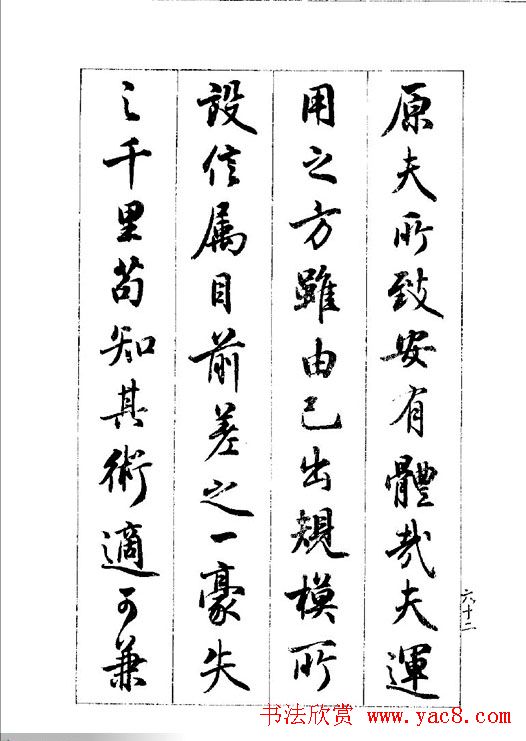 原夫所致安有體哉夫運
用之方雖由己出規模所
設信属目前差之一豪失
之千里苟知其術適可兼
六十二
书法欣赏 www.yac8.com